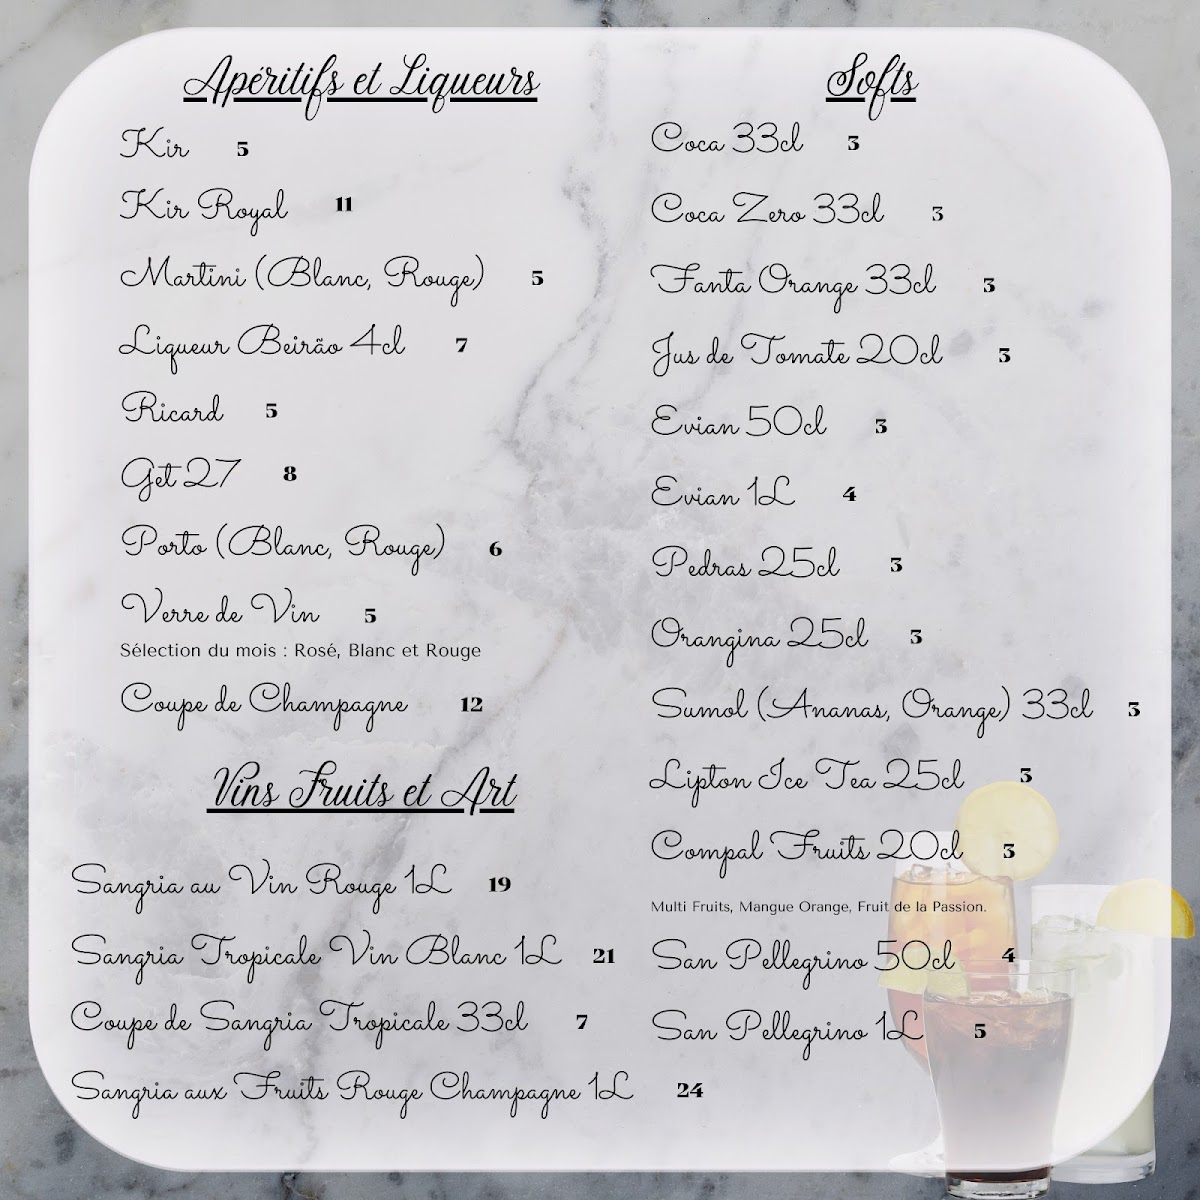 Apéritifs et Liqueurs
Kir 5
Kir Royal 11
Martini (Blanc, Rouge) 5
Liqueur Beirão 4cl 7
Ricard 5
Get 27 8
Porto (Blanc, Rouge) 6
Verre de Vin 5
Sélection du mois : Rosé, Blanc et Rouge
Coupe de Champagne 12
Vins Fruits et Art
Sangria au Vin Rouge 1L 19
Sangria Tropicale Vin Blanc 1L 21
Coupe de Sangria Tropicale 33cl 7
Sangria aux Fruits Rouge Champagne 1L 24
Softs
Coca 33cl 3
Coca Zero 33cl 3
Fanta Orange 33cl 3
Jus de Tomate 20cl 3
Evian 50cl 3
Evian 1L 4
Pedras 25cl 3
Orangina 25cl 3
Sumol (Ananas, Orange) 33cl 3
Lipton Ice Tea 25cl 3
Compal Fruits 20cl 3
Multi Fruits, Mangue Orange, Fruit de la Passion.
San Pellegrino 50cl 4
San Pellegrino 1L 5